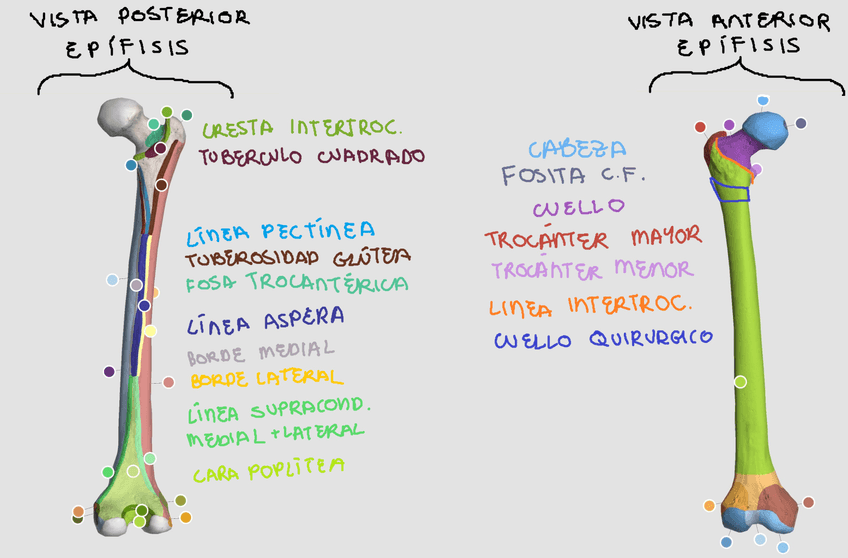 VISTA POSTERIOR
EPÍFISIS
CRESTA INTERTROC.
TUBERCULO CUADRADO
LÍNEA PECTÍNEA
TUBEROSIDAD GLÚTEA
FOSA TROCANTÉRICA
LÍNEA ASPERA
BORDE MEDIAL
BORDE LATERAL
LÍNEA SUPRACOND.
MEDIAL + LATERAL
CARA POPLÍTEA
VISTA ANTERIOR
EPÍFISIS
CABEZA
FOSITA C.F.
CUELLO
TROCÁNTER MAYOR
TROCÁNTER MENOR
LINEA INTERTROC.
CUELLO QUIRURGICO